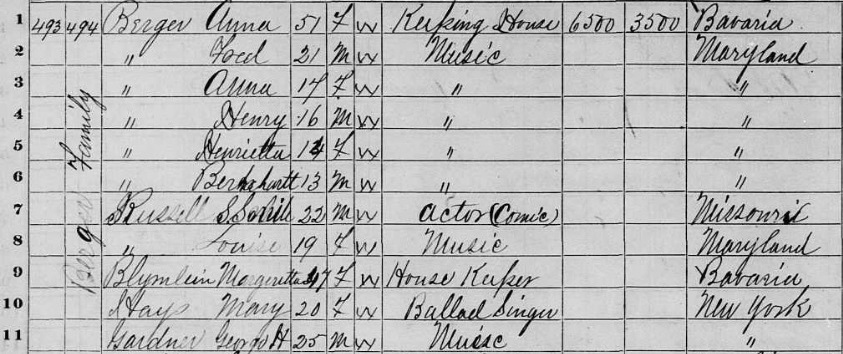 1 493 494 Berger Anna 51 F W Keeping House 6500 3500 Bavaria
2 " Fred 21 M W Music Maryland
3 " Anna 17 F W " "
4 " Henry 16 M W " "
5 " Henrietta 14 F W " "
6 " Bernhartt 13 M W " "
7 Russell S Solville 22 M W Actor (Comic) Missouri
8 " Louise 19 F W Music Maryland
9 Blymlein Margeretta 47 F W House Keeper Bavaria
10 Hays Mary 20 F W Ballad Singer New York
11 Gardner George H 25 M W Music "
Berger Family